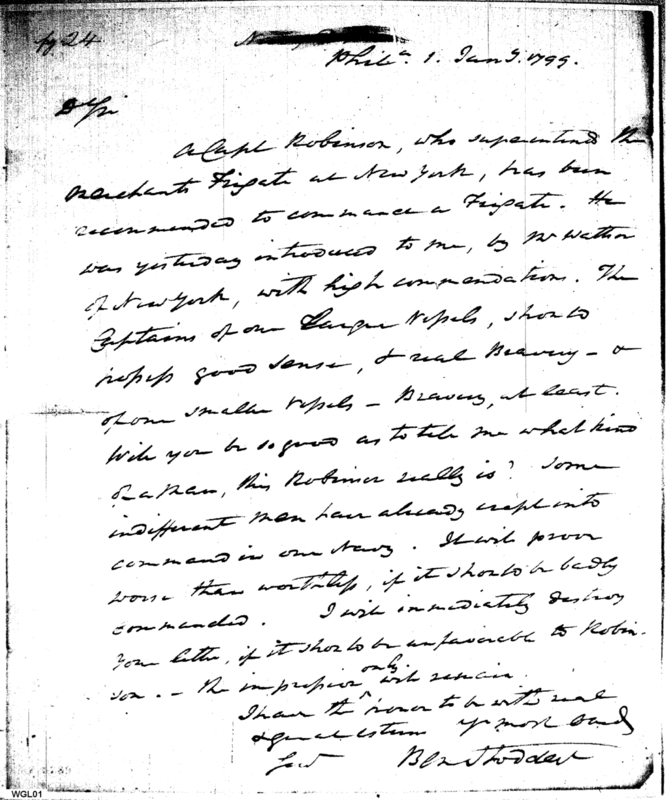 pg 24
Phila. 1. Jany. 1799.
Dr Sir
A Capt Robinson, who superintends the
Merchants Frigate at New York, has been
recommended to command a Frigate. He
was yesterday introduced to me, by Mr Watson
of New York, with high commendations. The
Captains of our Larger Vessels, should
possess good sense, & real Bravery – &
of our smaller Vessels – Bravery, at least.
Will you be so good as to tell me what kind
of a Man, this Robinson really is? Some
indifferent Men have already crept into
command in our Navy. It will prove
worse than worthless, if it should be badly
commanded. I will immediately destroy
your letter, if it should be unfavorable to Robin-
son. – the impression only will remain.
I have the honor to be with real
& great esteem yr most obed
Servt
Ben Stoddert
WGL01